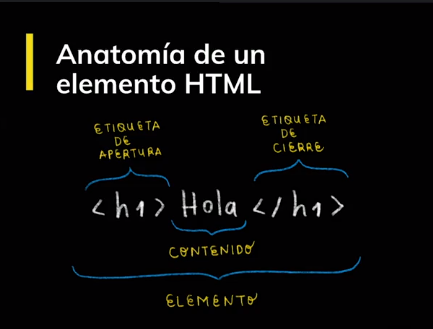 Anatomía de un
elemento HTML
ETIQUETA
DE
APERTURA
ETIQUETA
DE
CIERRE
<h1> Hola </h1>
CONTENIDO
ELEMENTO